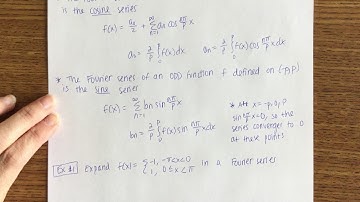 is the cosine series
f(x) = a₀/2 + Σ_{n=1}^{∞} an cos nπ/p x
a₀ = 2/p ∫_0^p f(x)dx   an = 2/p ∫_0^p f(x) cos nπ/p x dx
* The Fourier series of an ODD function f defined on (-p,p)
is the sine series
f(x) = Σ_{n=1}^{∞} bn sin nπ/p x
bn = 2/p ∫_0^p f(x) sin nπ/p x dx
* at x = -p, 0, p
sin nπ/p x = 0, so the
series converges to 0
at these points
Ex #1 Expand f(x) = { -1, -π<x<0
1, 0≤x<π in a Fourier series